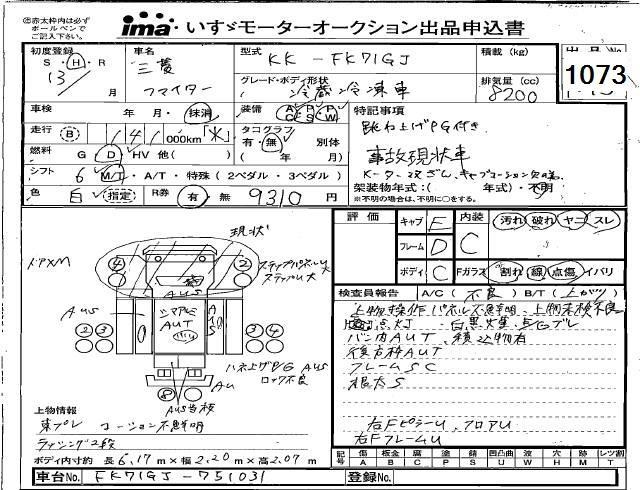 ②赤太枠内は必ず
ボールペンで
ご記入下さい。
ima いすゞモーターオークション出品申込書
1073
初度登録 S・H・R 13 月
車名 三菱 ファイター
型式 KK-FK71GJ
積載(kg)
グレード・ボディ形状 冷蔵冷凍車
排気量(cc) 8200
車検 年・月・抹消
装備 AC PS PW
特記事項
跳ね上げPG付き
事故現状車
走行 B 141 000km
タコグラフ 有・無 別体
( 年 月)
燃料 G D HV 他( )
シフト 6 M/T・A/T・特殊(2ペダル・3ペダル)
架装物年式:( 年式)・不明
※不明の場合は、不明に○をする。
色 白 指定 R券 有・無 9310 円
現状
評価 キャブ E 内装 汚れ 破れ ヤニ スレ
フレーム D C
ボディ C Fガラス 割れ 線 点傷 イバリ
検査員報告 A/C(不良) B/T(上がり)
上物操作パネル不鮮明・上物未検不良
バン内AUT、積込物有
後方枠AUT
フレームSC
根太S
右Fピラー U、フロアU
右FフレームU
ステップパネル大
ステップ大
AUS
AUT
ハネ上げPG AUS
ロック不良
AU
上物情報
東プレ コーション不鮮明
ラッシング2段
ボディ内寸約 長6.17m×幅2.20m×高2.07m
記号 傷 A 板金 B 腐 C 塗 P 錆 S 凹凸曲 U 波 W 穴 H 跡 M レツ割 T
車台No. FK71GJ-751031 登録No.